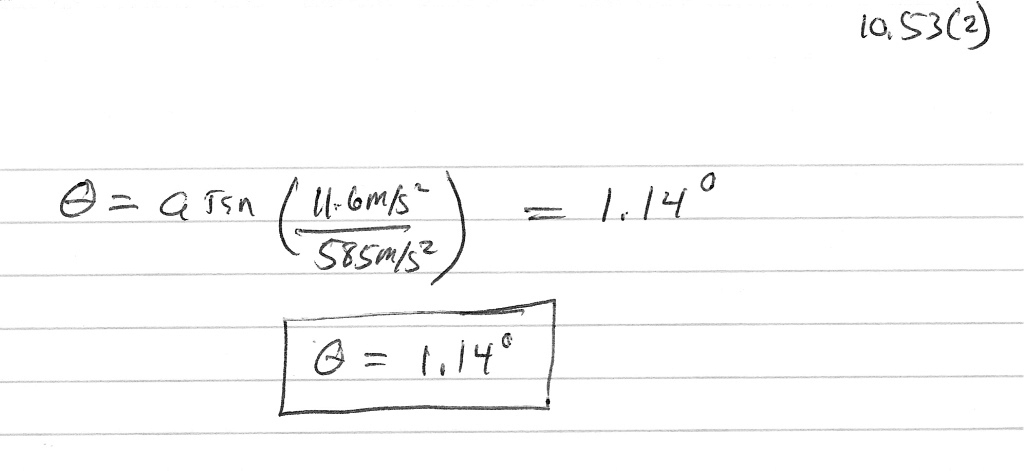 10.53(2)
θ = aTSn (11.6m/s² / 585m/s²) = 1.14°
θ = 1.14°